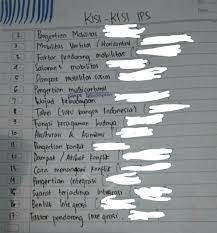 KISI - KISI IPS
1 Pengertian Mobilitas
2 Mobilitas Vertikal (Horizontal
3 Faktor pendorong mobilitas
4 Saluran² mobilitas
5 Dampak mobilitas sosial
6 Pengertian multicultural
7 Wujud kebudayaan
8 Tari (suku bangsa Indonesia)
9 Fungsi keragaman budaya
10 Akulturasi & Asimilasi
11 Pengertian konflik
12 Dampak / Akibat konflik
13 Cara menangani konflik
14 Pengertian Integrasi
15 Syarat terjadinya integrasi
16 Bentuk Integrasi
17 Faktor pendorong integrasi